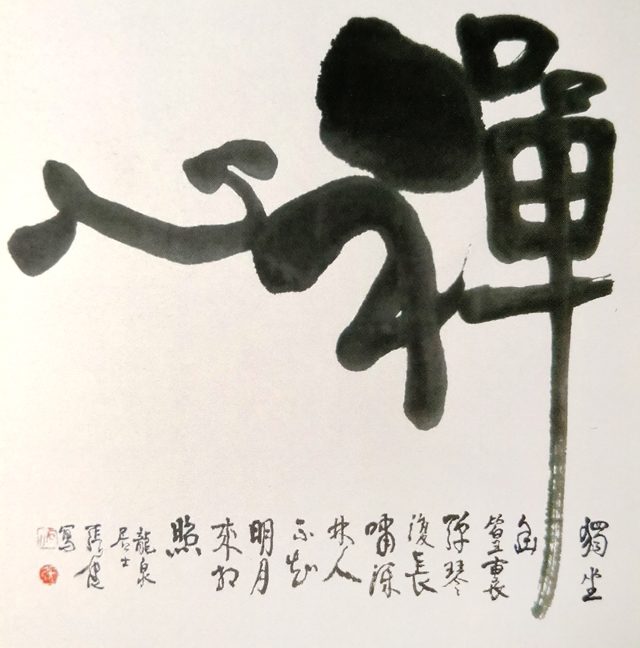 禪心
獨坐
幽
篁裏
彈琴
復長
嘯深
林人
不知
明月
來相
照
龍泉
居士
寫